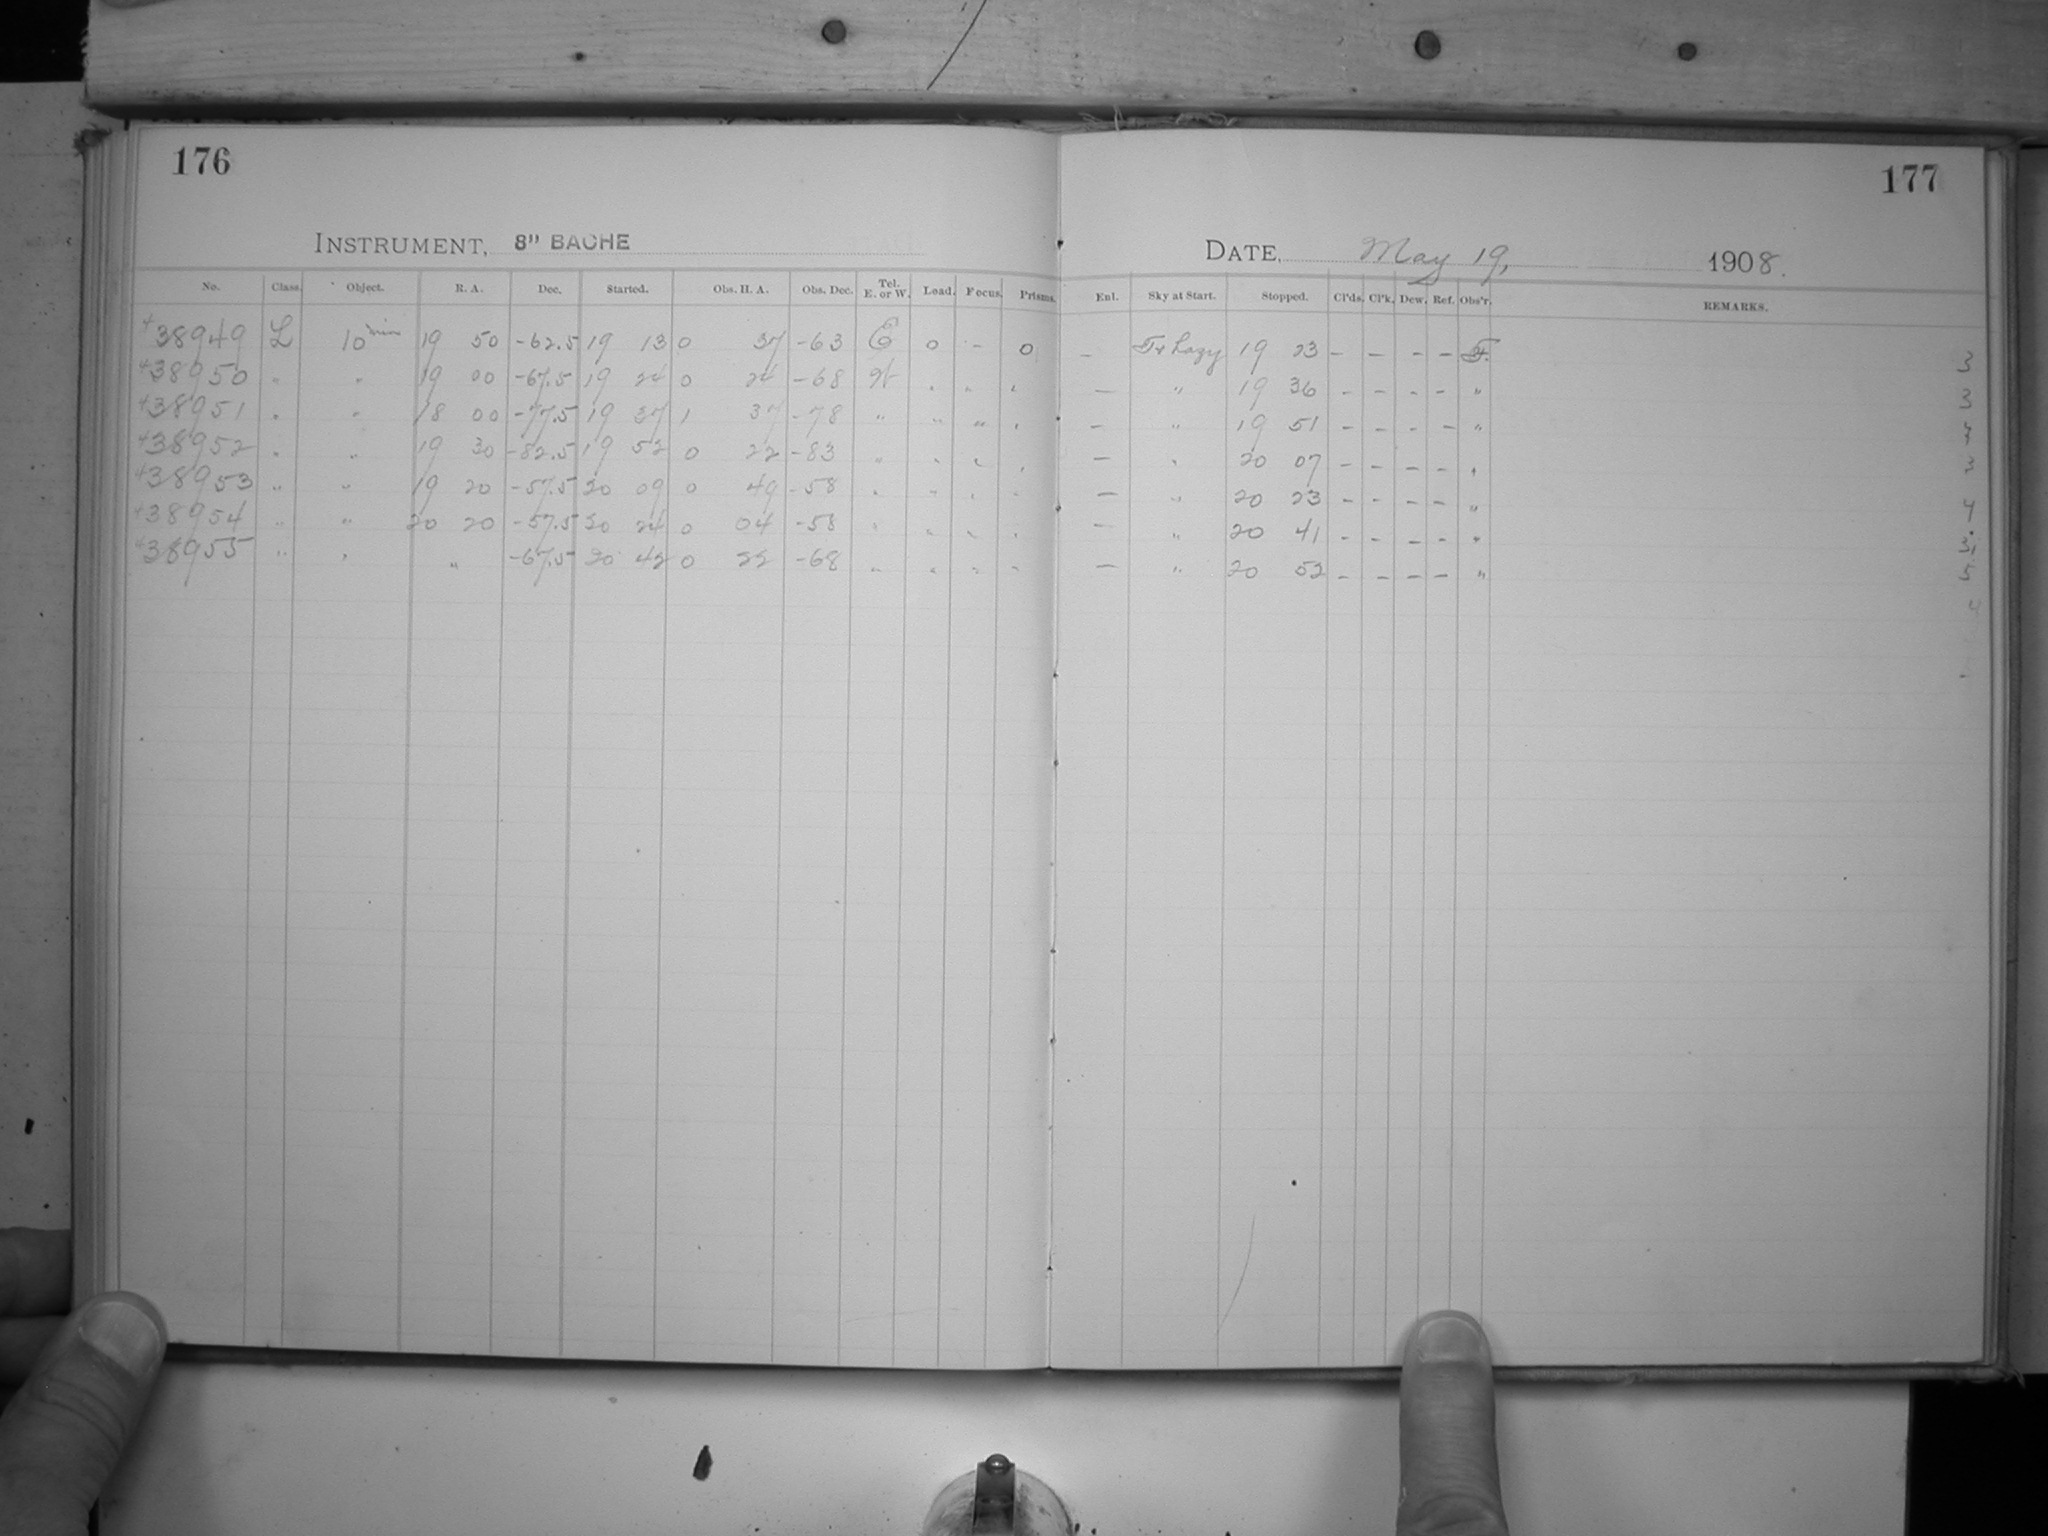 176
177
INSTRUMENT, 8" BACHE
DATE, May 19, 1908.
No. Class. Object. R. A. Dec. Started. Obs. H. A. Obs. Dec. Tel. E. or W. Load. Focus. Prisms. Enl. Sky at Start. Stopped. Cl'ds. Cl'k. Dew. Ref. Obs'r. REMARKS.
+38949 L 10 min 19 50 -62.5 19 13 0 37 -63 E 0 - 0 - hazy 19 23 - - - - F. 3
+38950 " " 19 00 -67.5 19 24 0 24 -68 W " " " - " 19 36 - - - - " 3
+38951 " " 18 00 -77.5 19 37 1 37 -78 " " " " - " 19 51 - - - - "
+38952 " " 19 30 -82.5 19 52 0 22 -83 " " " " - " 20 07 - - - - "
+38953 " " 19 20 -57.5 20 09 0 49 -58 " " " " - " 20 23 - - - - " 4
+38954 " " 20 20 -57.5 20 24 0 04 -58 " " " " - " 20 41 - - - - "
+38955 " " " -67.5 20 42 0 22 -68 " " " " - " 20 52 - - - - " 5
4